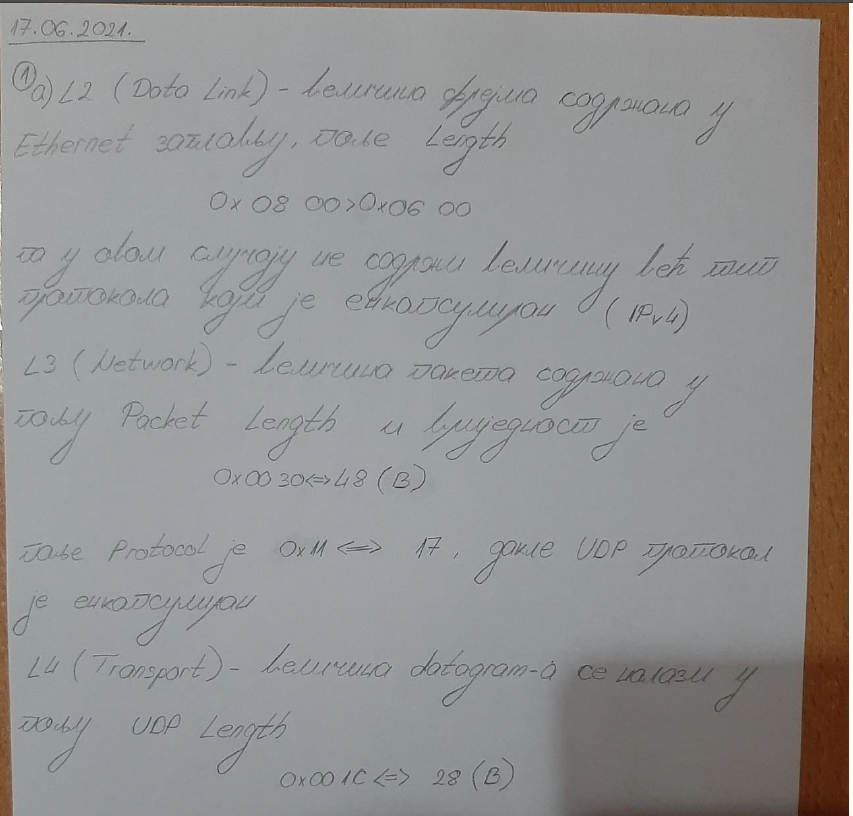 17.06.2021.
① а) L2 (Data Link) - величина фрејма содржана у
Ethernet заглављу, поље Length
0x 08 00>0x06 00
па у овом случају не содржи величину већ тип
протокола који је енкапсулиран (IPv4)
L3 (Network) - величина пакета содржана у
пољу Packet Length и вриједност је
0x00 30<=>48 (B)
поље Protocol је 0x11 <=> 17, дакле UDP протокол
је енкапсулиран
L4 (Transport) - величина datagram-а се налази у
пољу UDP Length
0x00 1C <=> 28 (B)